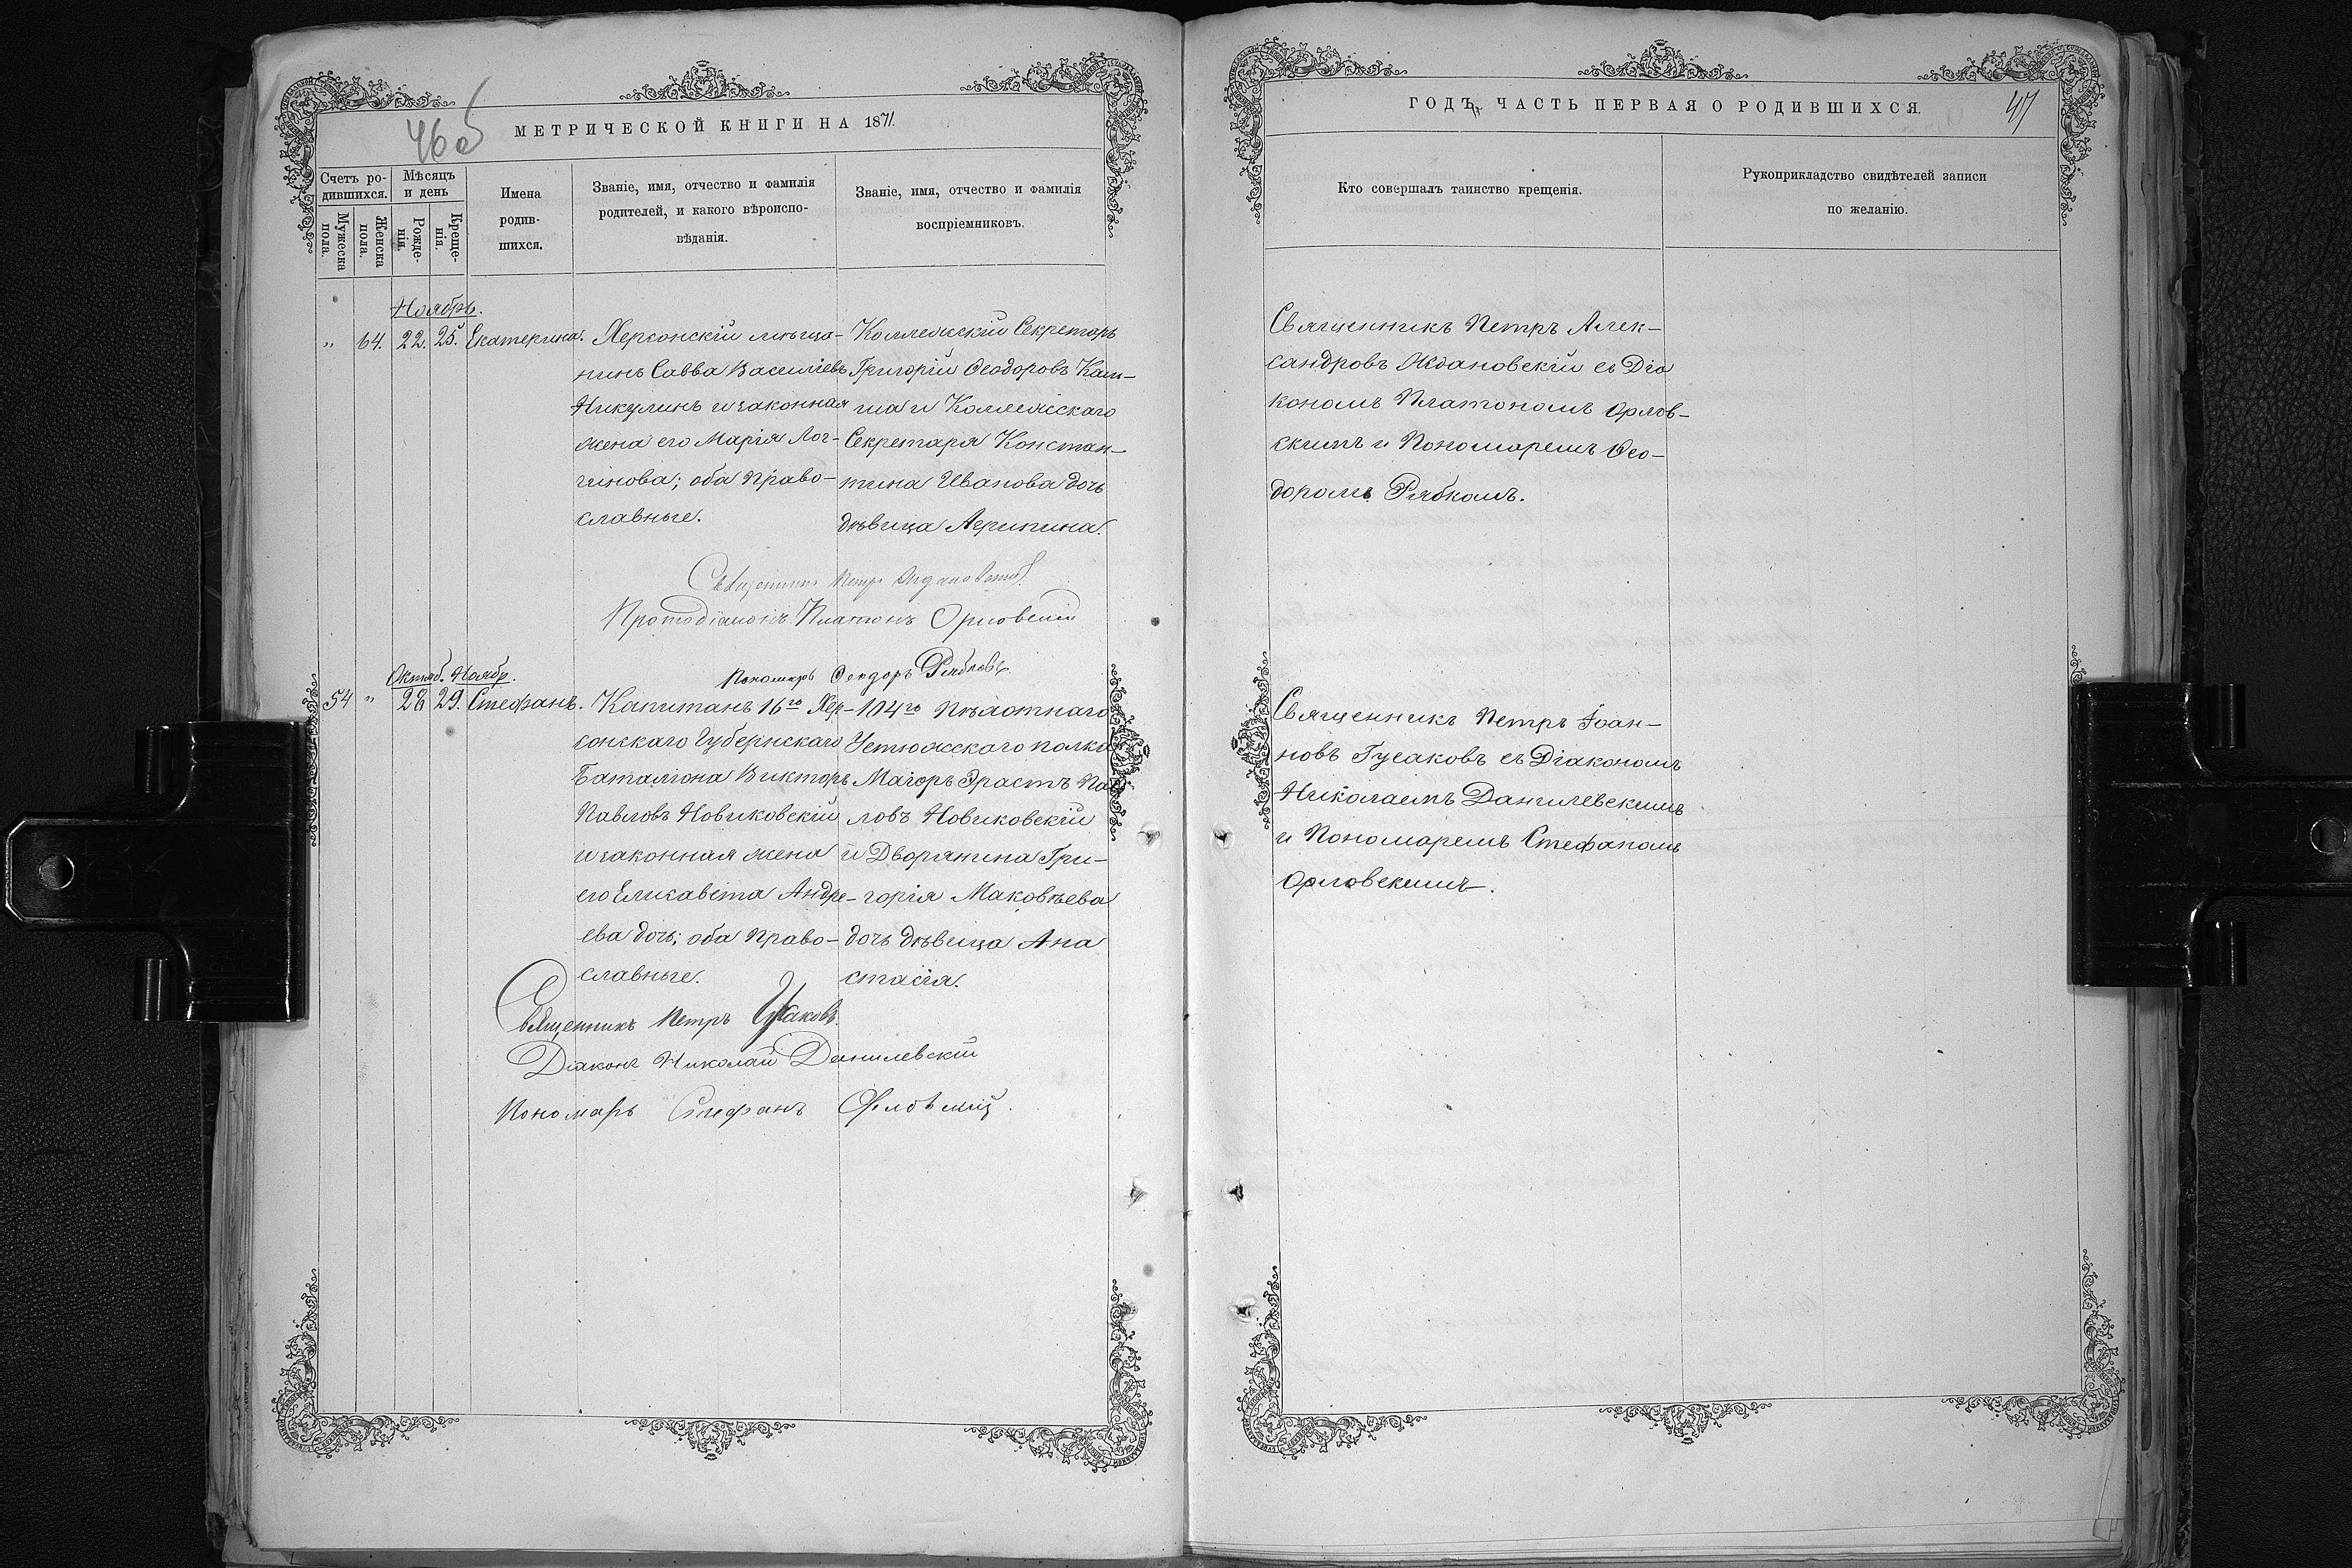 46об
МЕТРИЧЕСКОЙ КНИГИ НА 1871.
Счетъ ро-
дившихся.
Мѣсяцъ
и день
Мужеска
пола.
Женска
пола.
Рожде-
нія.
Креще-
нія.
Имена
родив-
шихся.
Званіе, имя, отчество и фамилія
родителей, и какого вѣроиспо-
вѣданія.
Званіе, имя, отчество и фамилія
воспріемниковъ.
Ноябрь.
„ 64. 22. 25. Екатерина.
Херсонскій мѣща-
нинъ Савва Василіевъ
Никулинъ и законная
жена его Марія Лог-
гинова; оба Право-
славные.
Коллежскій Секретарь
Григорій Ѳеодоровъ Каш-
ша и Коллежскаго
Секретаря Констан-
тина Иванова дочь
дѣвица Агрипина.
Священникъ Петръ Ждановскій
Протодіаконъ Платонъ Орловскій
Пономарь Ѳеодоръ Рябковъ
Октяб. Ноябр.
54 „ 28 29. Стефанъ.
Капитанъ 16го Хер-
сонскаго Губернскаго
Баталіона Викторъ
Павловъ Новиковскій
и законная жена
его Елисавета Андре-
ева дочь; оба Право-
славные.
104го Пѣхотнаго
Устюжскаго полка
Маіоръ Эрастъ Пав
ловъ Новиковскій
и Дворянина Гри-
горія Маковѣева
дочь дѣвица Ана
стасія.
Священникъ Петръ Гусаковъ.
Діаконъ Николай Данилевскій
Пономарь Стефанъ Орловскій.
ГОДЪ, ЧАСТЬ ПЕРВАЯ О РОДИВШИХСЯ.
47
Кто совершалъ таинство крещенія.
Рукоприкладство свидѣтелей записи
по желанію.
Священникъ Петръ Алек-
сандровъ Ждановскій съ Діа
кономъ Платономъ Орлов-
скимъ и Пономаремъ Ѳео-
доромъ Рябкомъ.
Священникъ Петръ Іоан-
новъ Гусаковъ съ Діакономъ
Николаемъ Данилевскимъ
и Пономаремъ Стефаномъ
Орловскимъ.